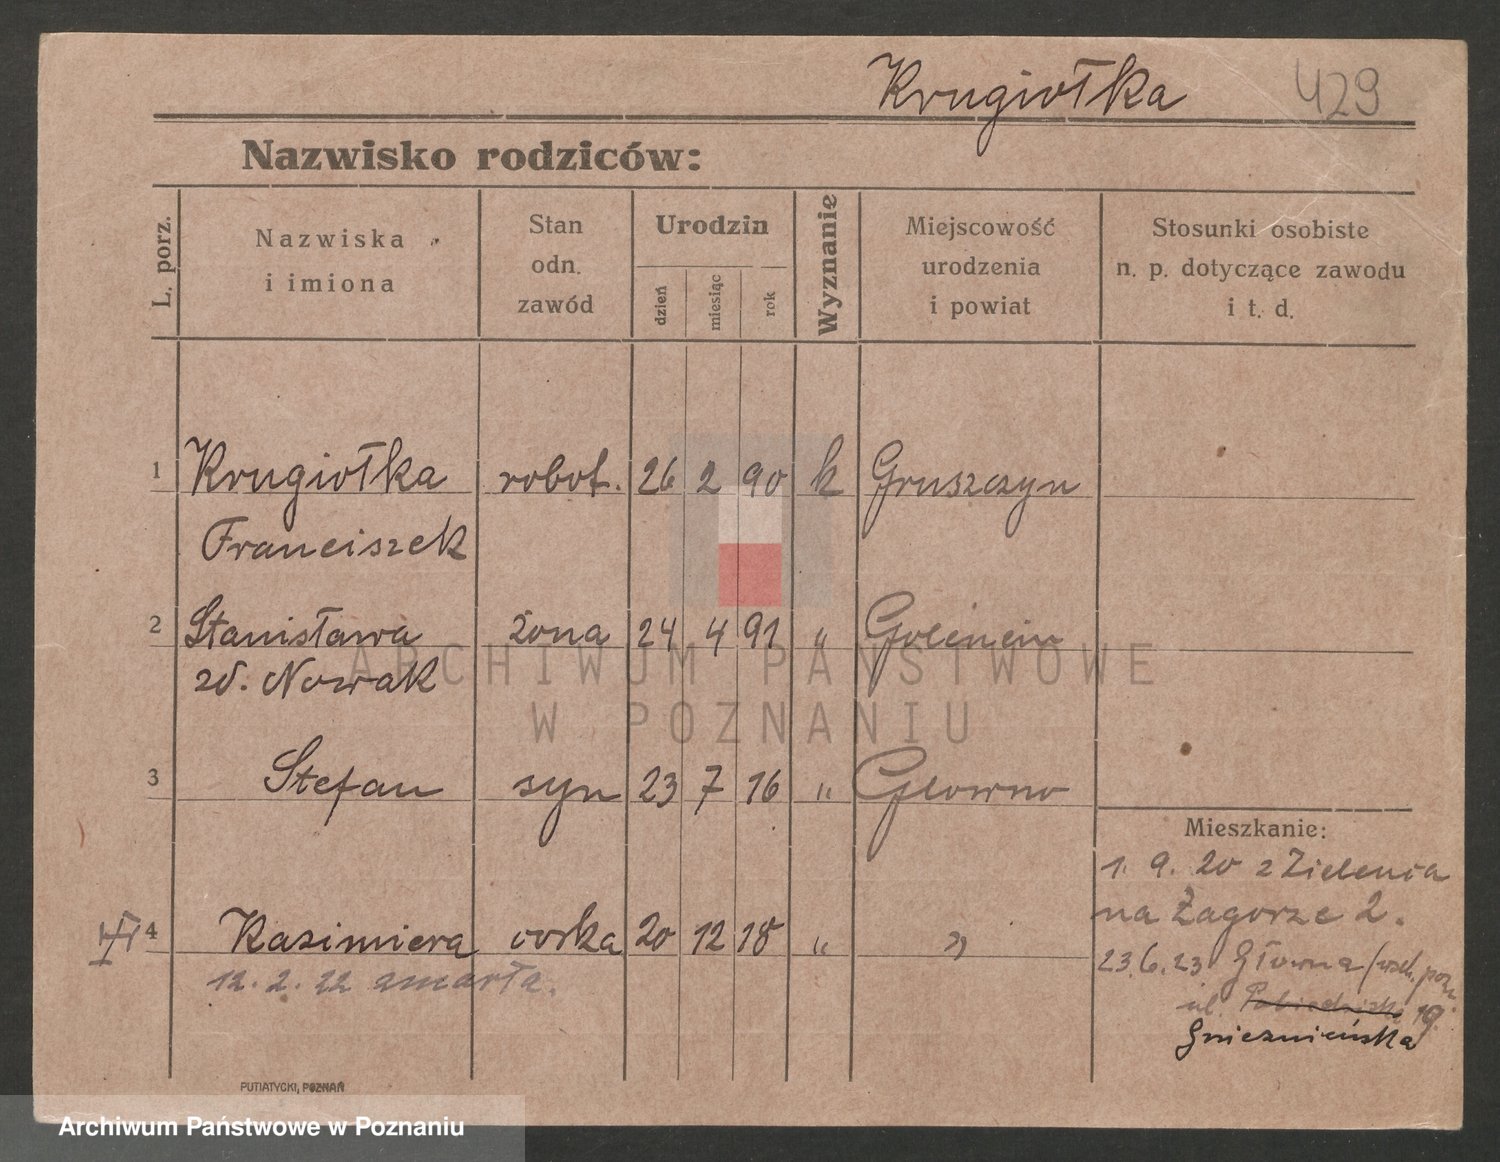 Krugiołka 429
Nazwisko rodziców:
L. porz.
Nazwiska
i imiona
Stan
odn.
zawód
Urodzin
dzień
miesiąc
rok
Wyznanie
Miejscowość
urodzenia
i powiat
Stosunki osobiste
n. p. dotyczące zawodu
i t. d.
1 Krugiołka robot. 26 2 90 k Gruszczyn
Franciszek
2 Stanisława żona 24 4 91 "
zd. Nowak
ARCHIWUM PAŃSTWOWE
W POZNANIU
3 Stefan syn 23 7 16 " Głowno
Mieszkanie:
1. 9. 20 z Zielenca
na Zagorze 2.
4 Kazimiera córka 20 12 18 " "
12. 2. 22 zmarła.
23.6.23 Główna/wsch. pozn
ul. 19.
Gnieznieńska
PUTIATYCKI, POZNAŃ
Archiwum Państwowe w Poznaniu